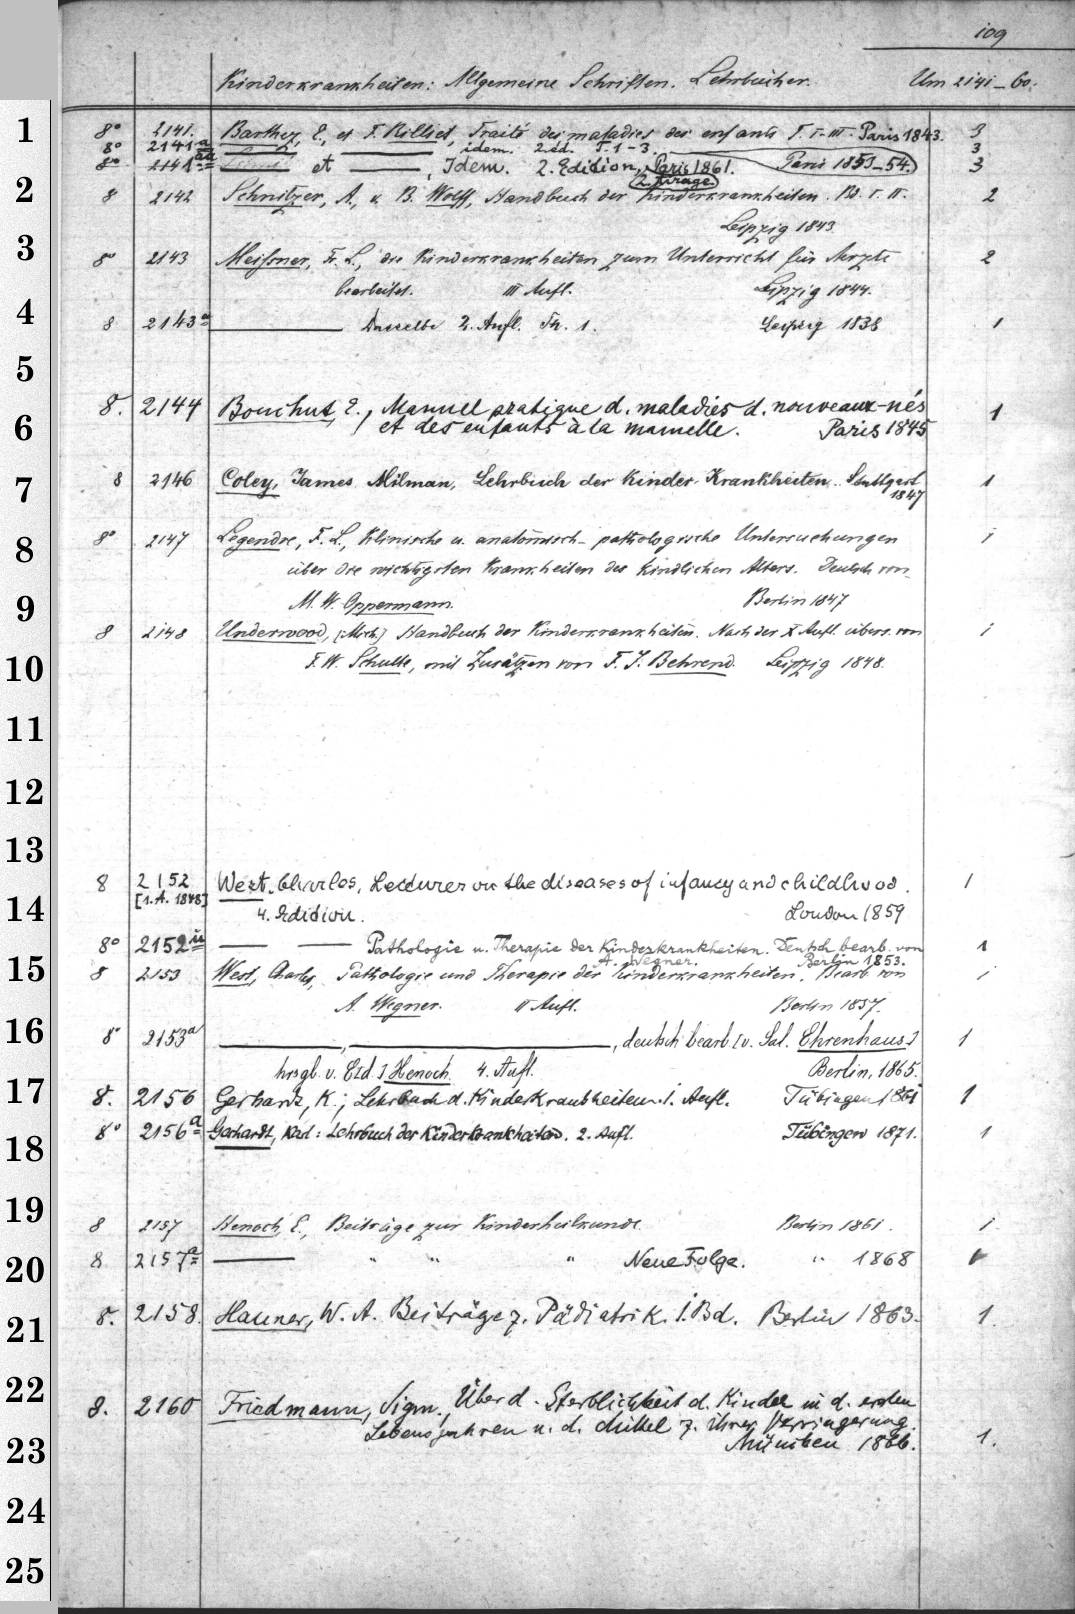 109
Kinderkrankheiten: Allgemeine Schriften. Lehrbücher. Um 2141–60.
1 8° 2141. Barthez, E., et F. Rilliet, Traité des maladies des enfants T. I–III. Paris 1843. 3
8° 2141a idem. 2 éd. T. 1–3. Paris 1853–54. 3
8° 2141aa et , Idem. 2. Edition, Paris 1861. 3
2. tirage.
2 8 2142 Schnitzer, A., u. B. Wolff, Handbuch der Kinderkrankheiten. Bd. I. II. 2
Leipzig 1843.
3 8° 2143 Meißner, Fr. L., die Kinderkrankheiten zum Unterricht für Aerzte 2
bearbeitet. III Aufl. Leipzig 1844.
4 8 2143a Dasselbe 2. Aufl. Th. 1. Leipzig 1838 1
5
8. 2144 Bouchut, E., Manuel pratique d. maladies d. nouveaux-nés 1
6 et des enfants à la mamelle. Paris 1845
7 8 2146 Coley, James Milman, Lehrbuch der Kinder-Krankheiten. Stuttgart 1
1847
8 8° 2147 Legendre, F. L., Klinische u. anatomisch-pathologische Untersuchungen 1
über die wichtigsten Krankheiten des kindlichen Alters. Deutsch von
9 M. W. Oppermann. Berlin 1847
8 2148 Underwood, (Mich.) Handbuch der Kinderkrankheiten. Nach der X Aufl. übers. von 1
10 F. W. Schulte, mit Zusätzen von F. J. Behrend. Leipzig 1848.
11
12
13
8 2152 West, Charles, Lectures on the diseases of infancy and childhood. 1
14 [1. A. 1848] 4. Edition. London 1859
8° 2152 Pathologie u. Therapie der Kinderkrankheiten. Deutsch bearb. von 1
A. Wegner. Berlin 1853.
15 8 2153 West, Charles, Pathologie und Therapie der Kinderkrankheiten. Bearb von 1
A. Wegner. II Aufl. Berlin 1857.
16 8° 2153a , , deutsch bearb [v. Sal. Ehrenhaus] 1
hrsg. v. E[d.] Henoch. 4. Aufl. Berlin, 1865.
17 8. 2156 Gerhardt, K.; Lehrbuch d. Kinderkrankheiten. 1. Aufl. Tübingen 1861 1
18 8° 2156a Gerhardt, Karl: Lehrbuch der Kinderkrankheiten. 2. Aufl. Tübingen 1871. 1
19 8 2157 Henoch, E., Beiträge zur Kinderheilkunde. Berlin 1861. 1
20 8 2157a " " " Neue Folge. " 1868
21 8. 2158. Hauner, W. A. Beiträge z. Pädiatrik. 1. Bd. Berlin 1863. 1.
22 8. 2160 Friedmann, Sigm., Über d. Sterblichkeit d. Kinder in d. ersten
Lebensjahren u. d. Mittel z. ihrer Verringerung.
23 München 1866. 1.
24
25